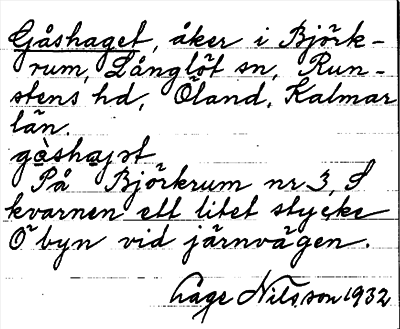 Gåshaget, åker i Björk-
rum, Långlöt sn, Run-
stens hd, Öland, Kalmar
län.
gåshajət
På Björkrum nr 3, S
kvarnen ett litet stycke
Ö byn vid järnvägen.
Åge Nilsson 1932